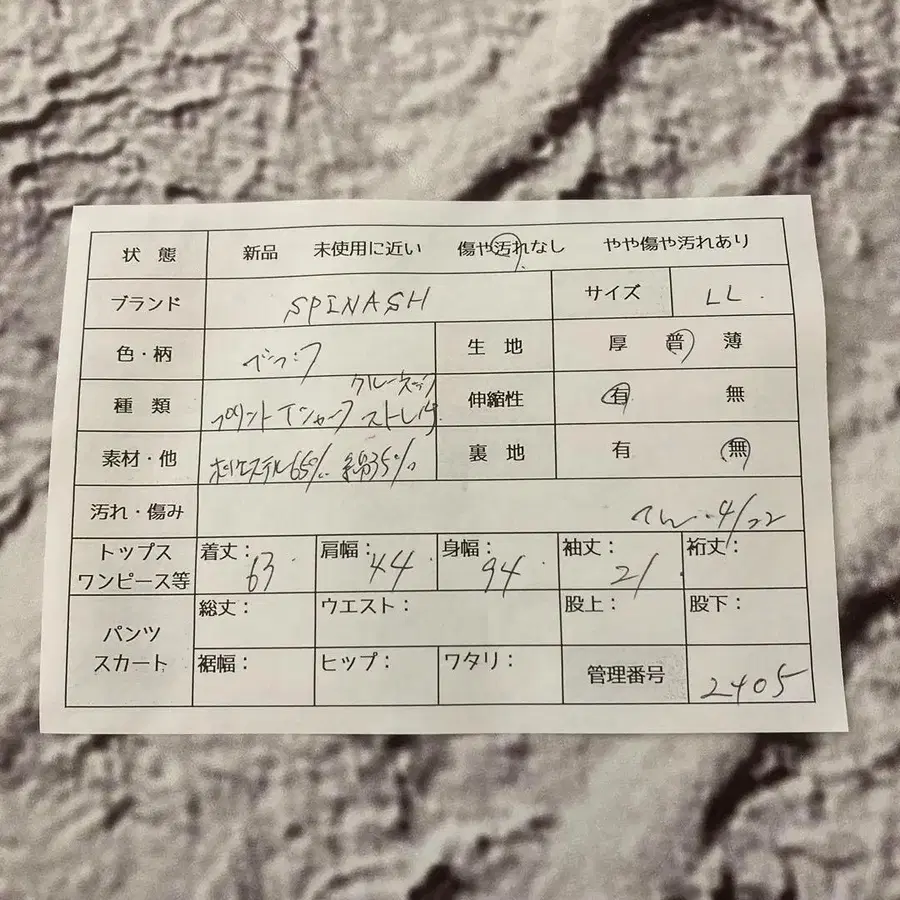 状 態 新品 未使用に近い 傷や汚れなし やや傷や汚れあり
ブランド SPINASH サイズ LL.
色・柄 生 地 厚 普 薄
種 類 クルーネック
プリントTシャツ ストレッチ 伸縮性 有 無
素材・他 ポリエステル65% 綿35% 裏 地 有 無
汚れ・傷み 4/22
トップス
ワンピース等 着丈：63 肩幅：44 身幅：94 袖丈：21 裄丈：
パンツ
スカート 総丈： ウエスト： 股上： 股下：
裾幅： ヒップ： ワタリ： 管理番号 2405